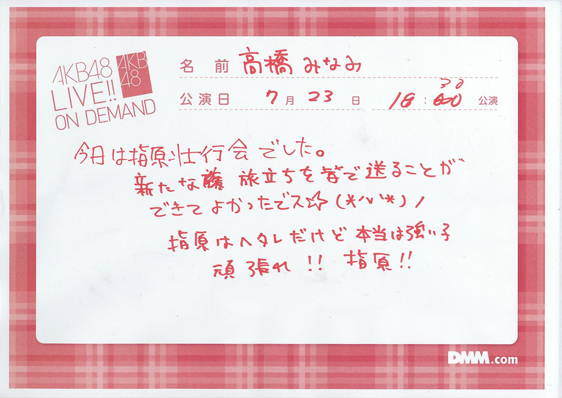 AKB48
LIVE!!
ON DEMAND
AKB
48
名 前 高橋みなみ
公演日 7月23日 18:30 公演
今日は指原壮行会でした。
新たな旅立ちを皆で送ることが
できてよかったでス☆☆(*^^*)ノ
指原はヘタレだけど本当は強い子
頑張れ!! 指原!!
DMM.com